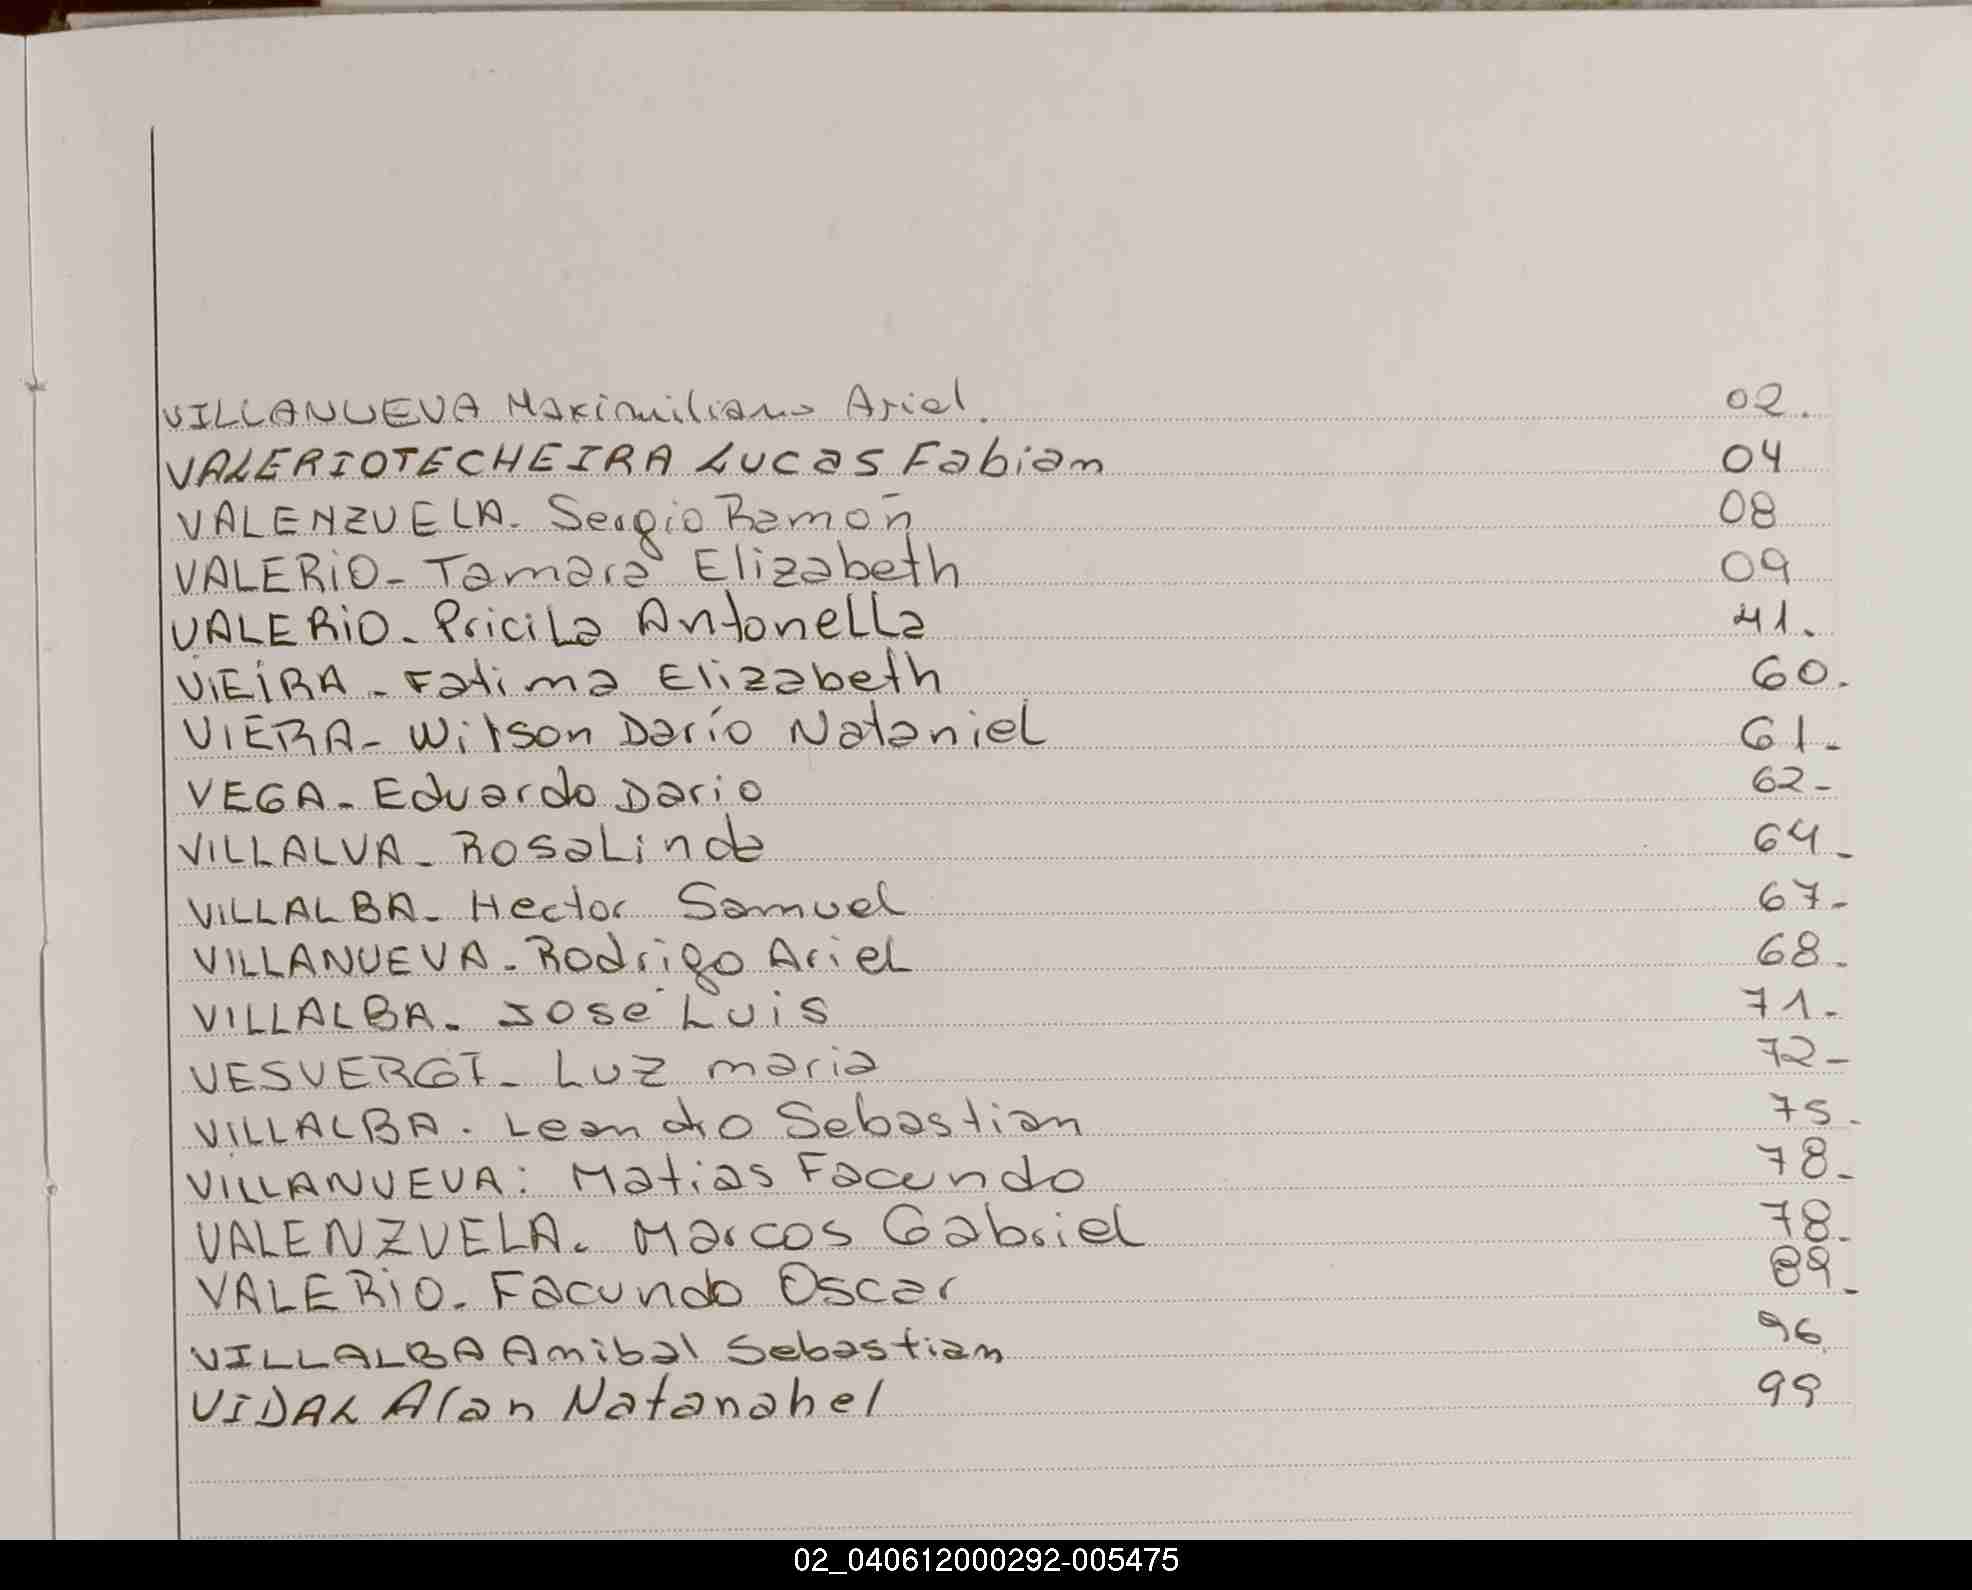 VILLANUEVA Maximiliano Ariel. 02.
VALERIOTECHEIRA Lucas Fabian 04
VALENZUELA. Sergio Ramón 08
VALERIO - Tamara Elizabeth 09
VALERIO. Pricila Antonella 41.
VIEIRA - Fatima Elizabeth 60.
VIERA - Wilson Darío Nataniel 61-
VEGA - Eduardo Dario 62-
VILLALVA - Rosalinda 64-
VILLALBA - Hector Samuel 67-
VILLANUEVA - Rodrigo Ariel 68-
VILLALBA. José Luis 71-
VESVERGT - Luz maria 72-
VILLALBA. Leandro Sebastian 75.
VILLANUEVA: Matias Facundo 78-
VALENZUELA. Marcos Gabriel 78.
VALERIO. Facundo Oscar 89-
VILLALBA Anibal Sebastian 96
VIDAL Alan Natanahel 99
02_040612000292-005475